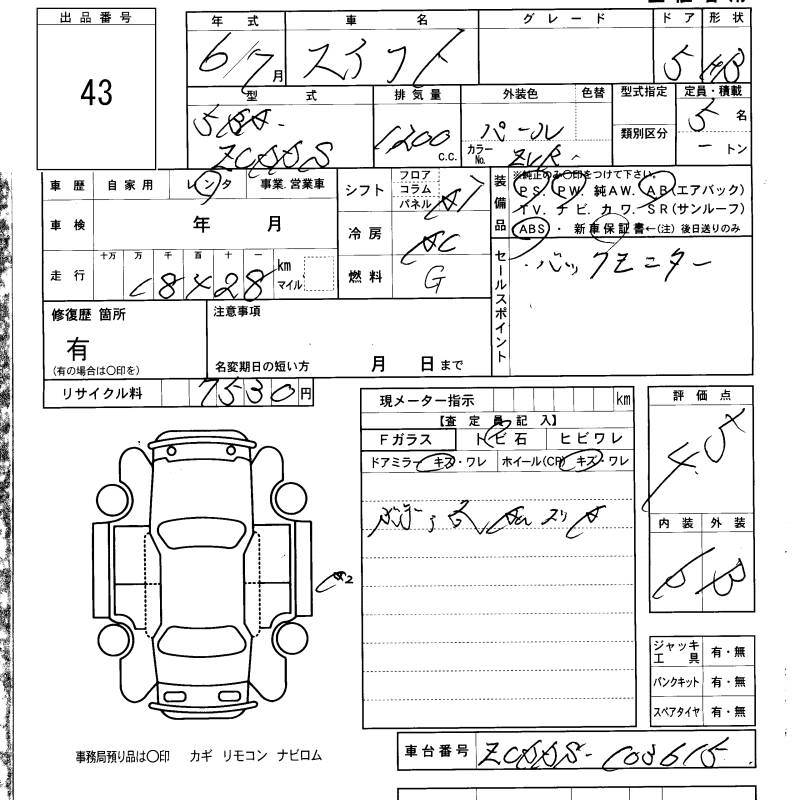 出品番号
43
年式 車名 グレード ドア 形状
6/7月 スイフト 5 HB
型式 排気量 外装色 色替 型式指定 定員・積載
1200 c.c. パール カラーNo. 類別区分 5名 トン
車歴 自家用 レンタ 事業・営業車
シフト フロア コラム パネル AT
装備品 ※純正のみ〇印をつけて下さい。
PS. PW. 純AW. AB(エアバック)
TV. ナビ. カワ. SR(サンルーフ)
ABS ・ 新車保証書←(注) 後日送りのみ
車検 年 月
冷房 AC
走行 十万 万 千 百 十 一 18428 km マイル
燃料 G
セールスポイント バックモニター
修復歴 箇所
有
(有の場合は〇印を)
注意事項
名変期日の短い方 月 日まで
リサイクル料 7530円
現メーター指示 km
【査定員記入】
Fガラス トビ石 ヒビワレ
ドアミラー キズ・ワレ ホイール(CP) キズ・ワレ
評価点
4.5
内装 外装
B B
A2
ジャッキ工具 有・無
パンクキット 有・無
スペアタイヤ 有・無
事務局預り品は〇印 カギ リモコン ナビロム
車台番号